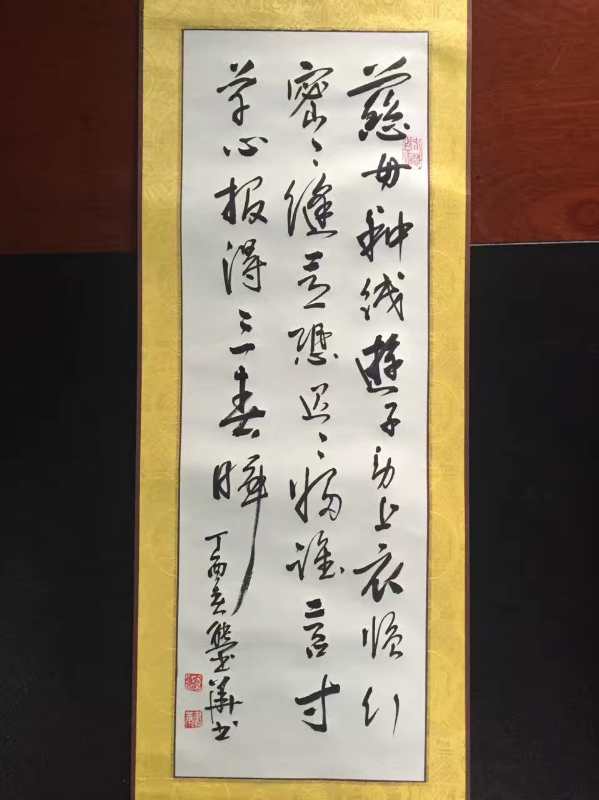 慈母手中线遊子身上衣临行
密々缝意恐迟々归谁言寸
草心报得三春晖
丁酉 華书